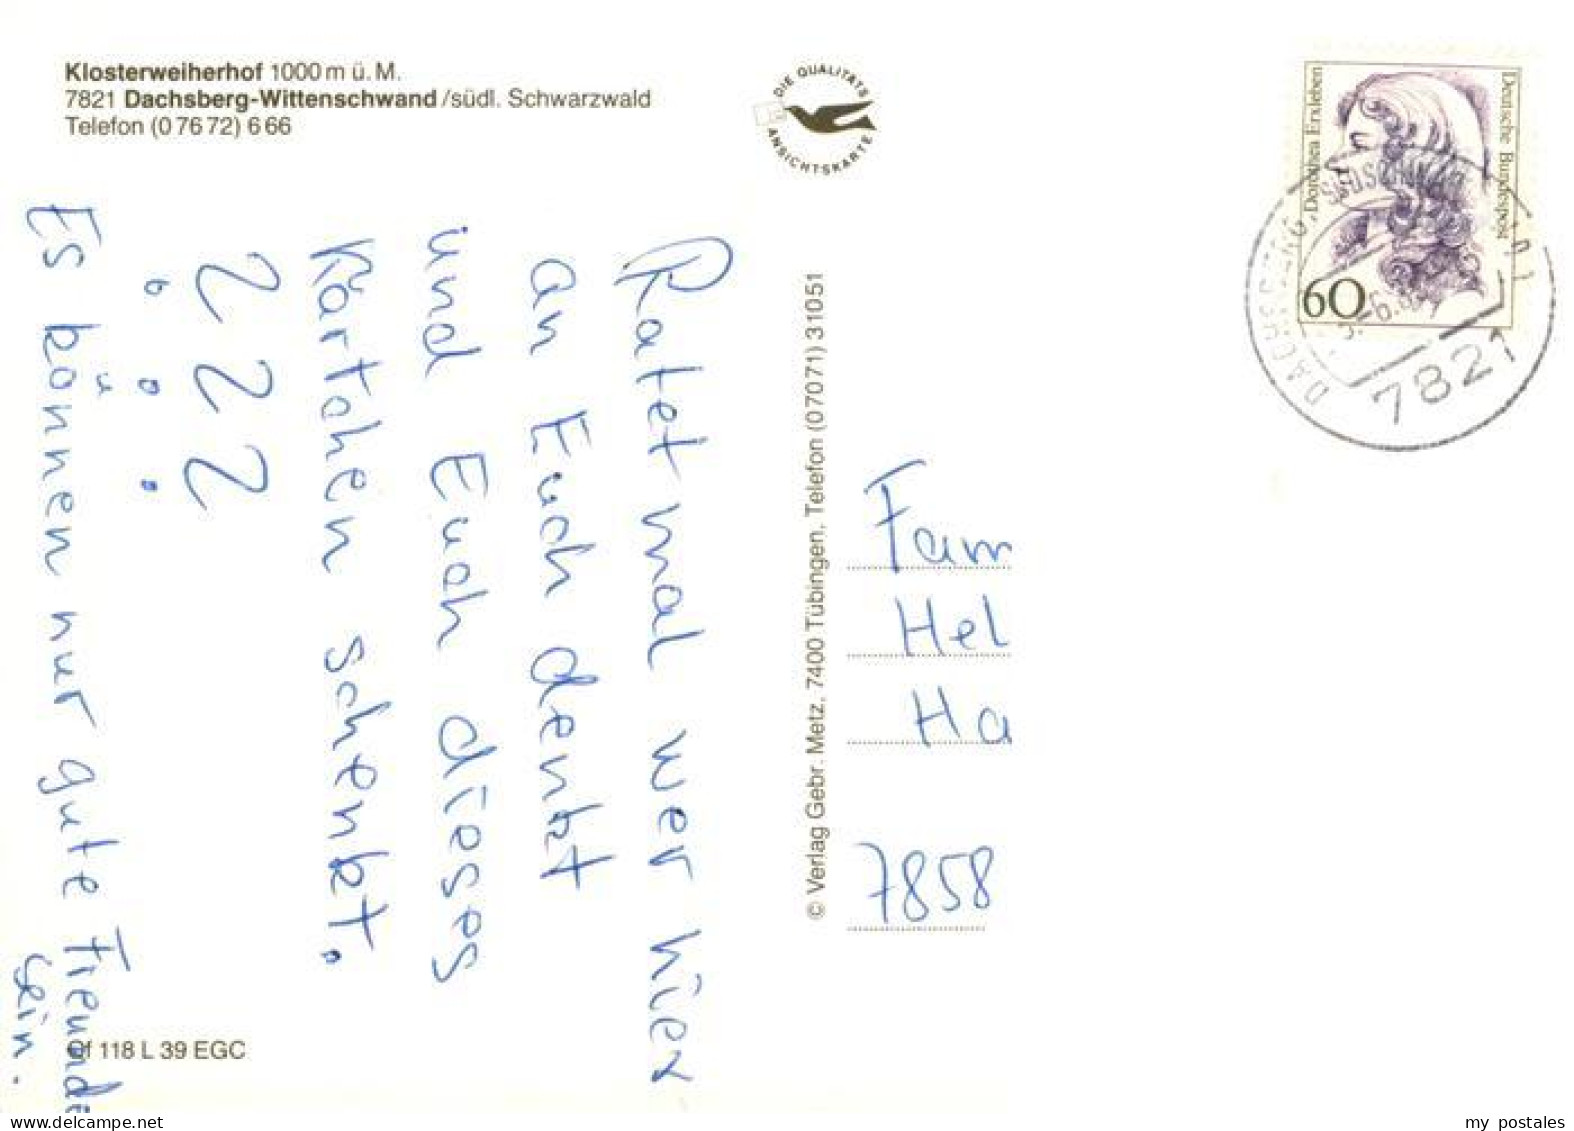 Klosterweiherhof 1000 m ü. M.
7821 Dachsberg-Wittenschwand /südl. Schwarzwald
Telefon (0 76 72) 6 66
DIE QUALITÄTS
ANSICHTSKARTE
Deutsche Bundespost
Dorothea Erxleben
60
7821
Ratet mal wer hier
an Euch denkt
und Euch dieses
Kärtchen schenkt.
? ? ?
Es können nur gute Freunde
sein.
© Verlag Gebr. Metz, 7400 Tübingen, Telefon (0 70 71) 3 10 51
Fam
Hel
Ha
7858
118 L 39 EGC
www.delcampe.net
my_postales